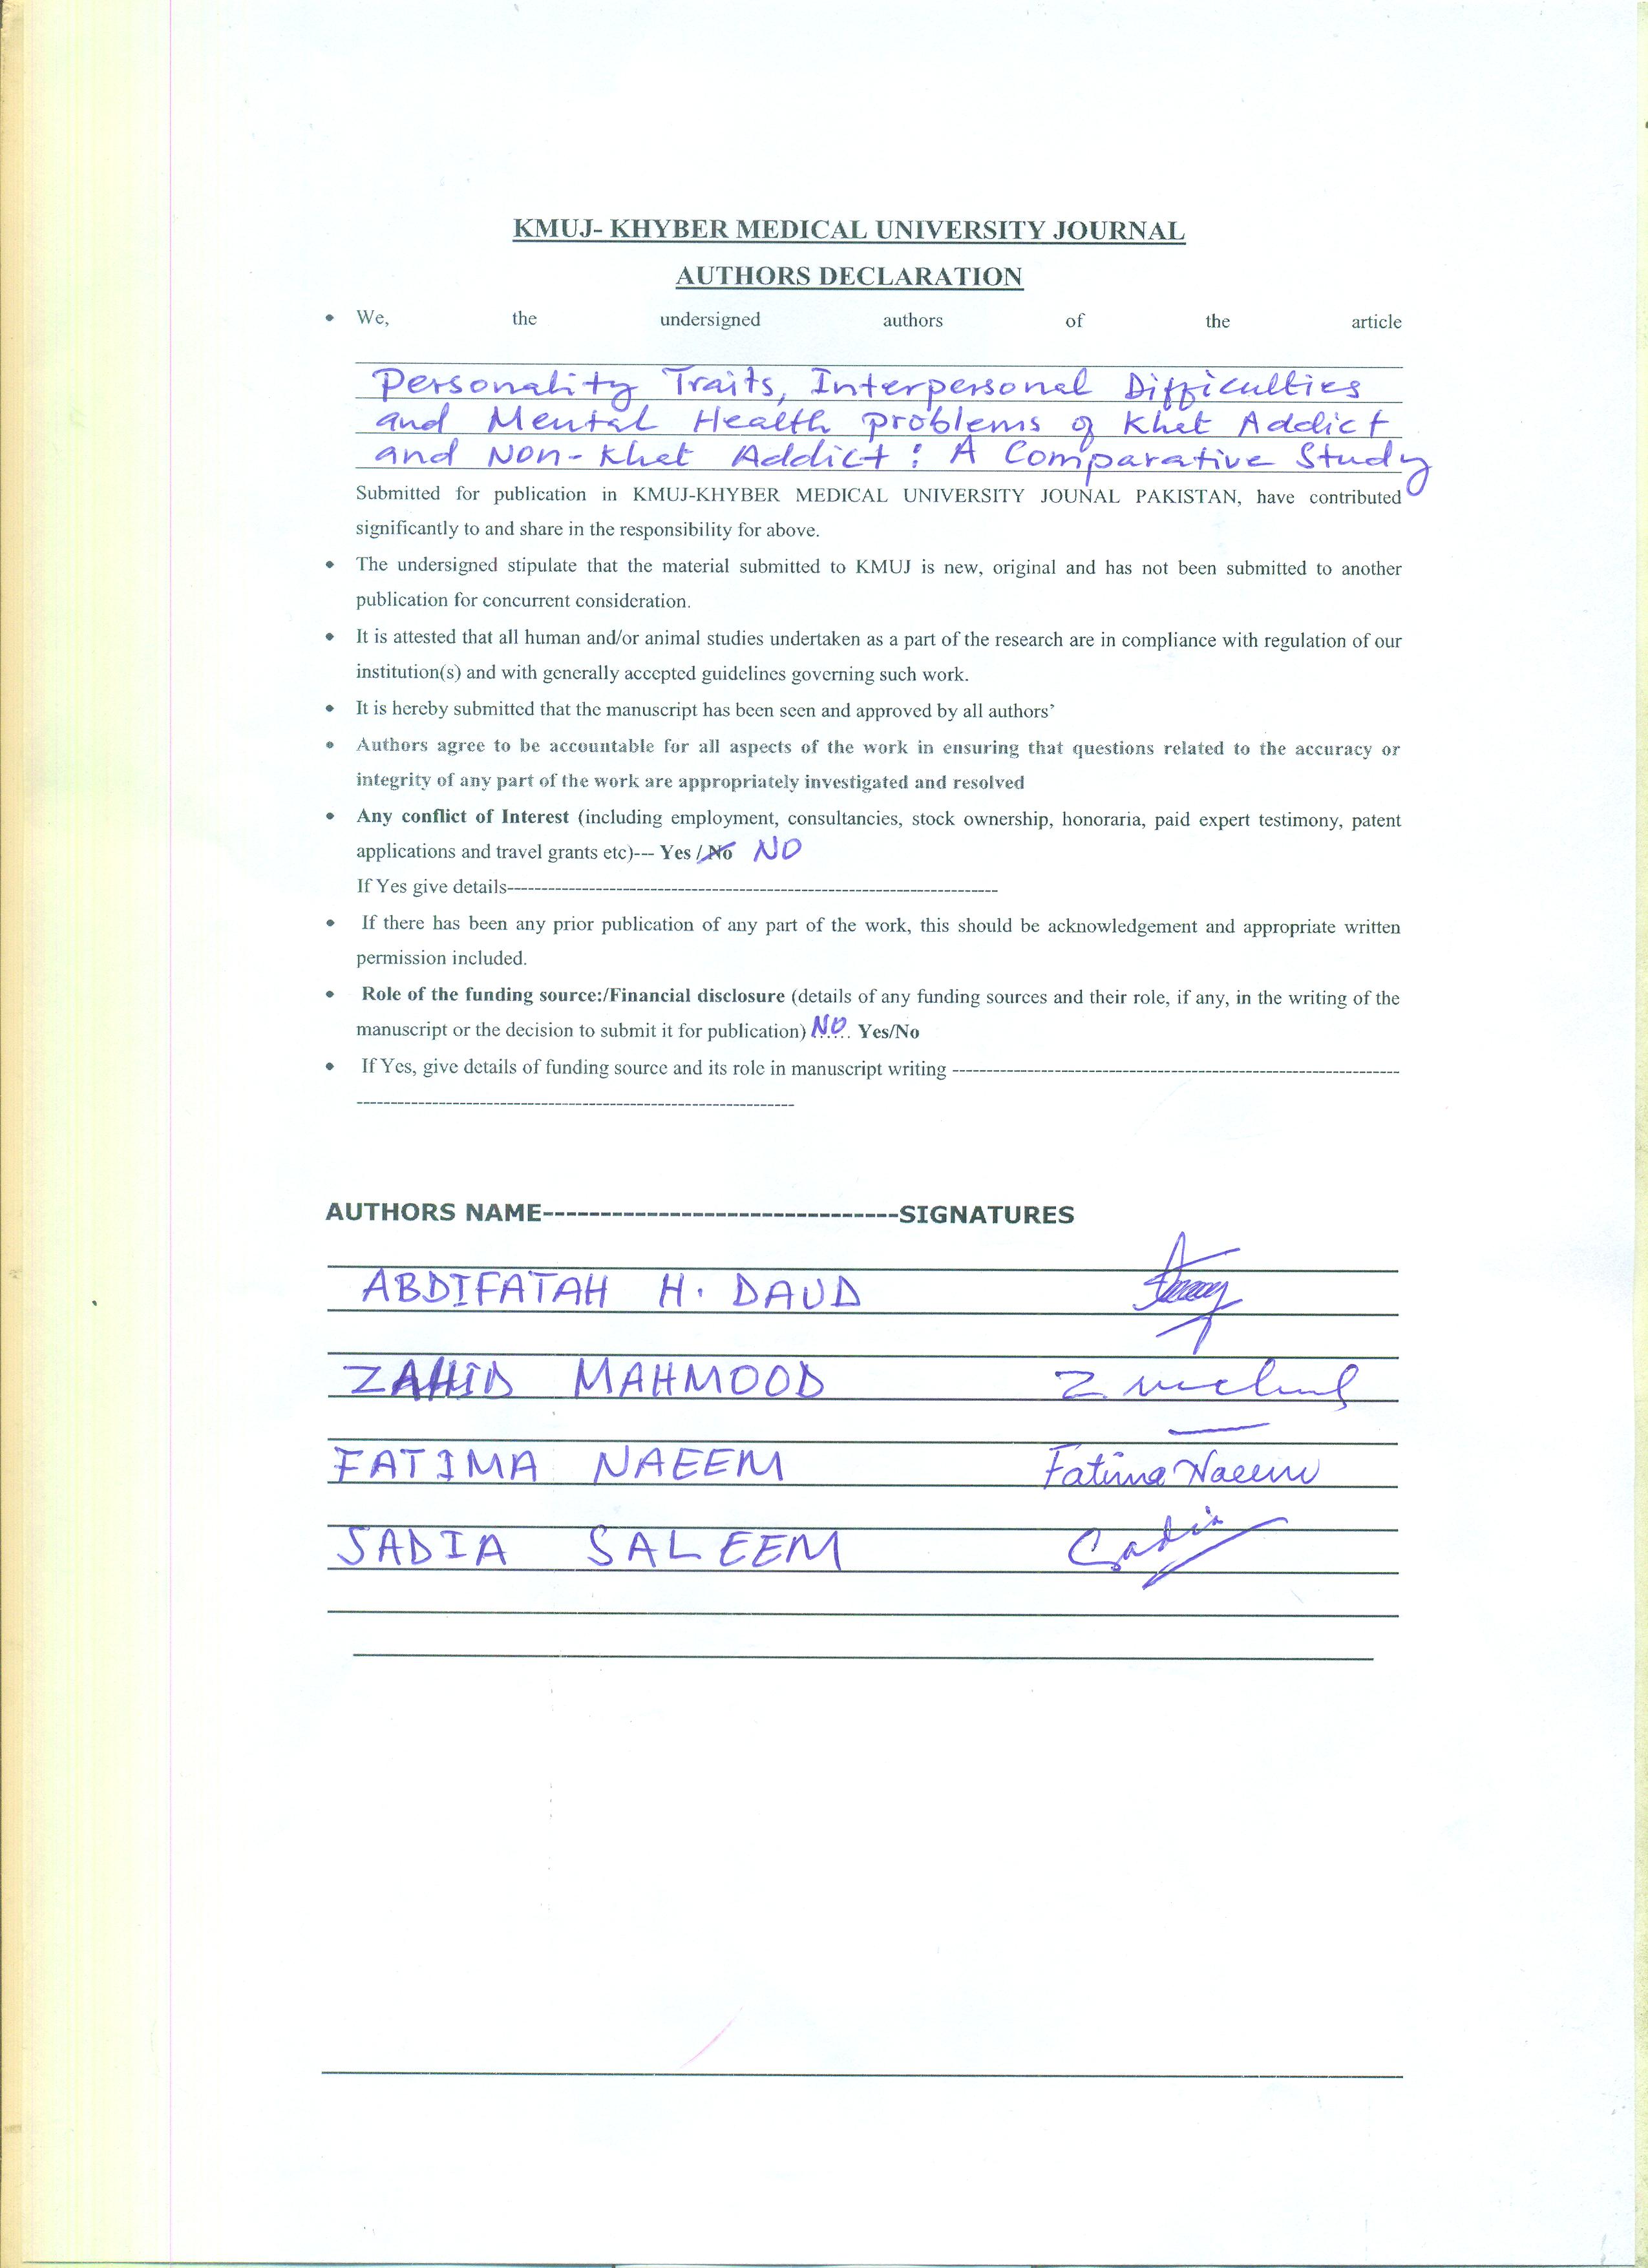 KMUJ- KHYBER MEDICAL UNIVERSITY JOURNAL
AUTHORS DECLARATION
• We, the undersigned authors of the article
Personality Traits, Interpersonal Difficulties
and Mental Health problems of Khat Addict
and Non-Khat Addict : A Comparative Study
Submitted for publication in KMUJ-KHYBER MEDICAL UNIVERSITY JOUNAL PAKISTAN, have contributed
significantly to and share in the responsibility for above.
• The undersigned stipulate that the material submitted to KMUJ is new, original and has not been submitted to another
publication for concurrent consideration.
• It is attested that all human and/or animal studies undertaken as a part of the research are in compliance with regulation of our
institution(s) and with generally accepted guidelines governing such work.
• It is hereby submitted that the manuscript has been seen and approved by all authors’
• Authors agree to be accountable for all aspects of the work in ensuring that questions related to the accuracy or
integrity of any part of the work are appropriately investigated and resolved
• Any conflict of Interest (including employment, consultancies, stock ownership, honoraria, paid expert testimony, patent
applications and travel grants etc)--- Yes / No NO
If Yes give details------------------------------------------------------------------------
• If there has been any prior publication of any part of the work, this should be acknowledgement and appropriate written
permission included.
• Role of the funding source:/Financial disclosure (details of any funding sources and their role, if any, in the writing of the
manuscript or the decision to submit it for publication) NO..... Yes/No
• If Yes, give details of funding source and its role in manuscript writing ------------------------------------------------------------------
----------------------------------------------------------------
AUTHORS NAME-------------------------------SIGNATURES
ABDIFATAH H. DAUD
ZAHID MAHMOOD
FATIMA NAEEM Fatima Naeem
SADIA SALEEM Sadia